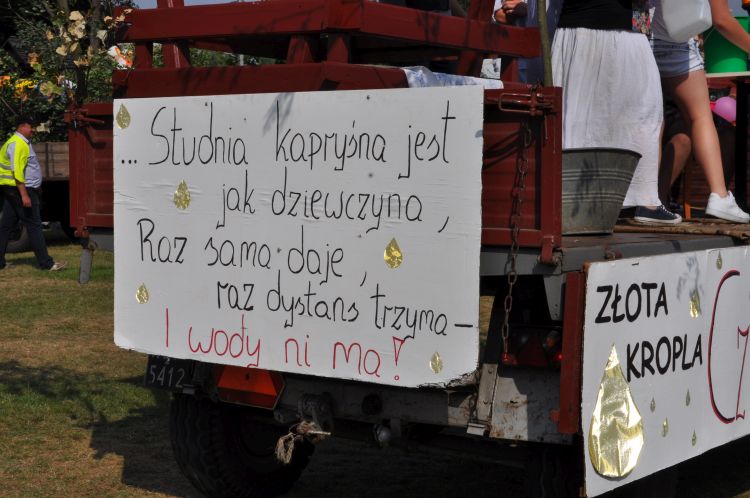 ... Studnia kapryśna jest
jak dziewczyna,
Raz sama daje,
raz dystans trzyma –
I wody ni ma!
5412
ZŁOTA
KROPLA